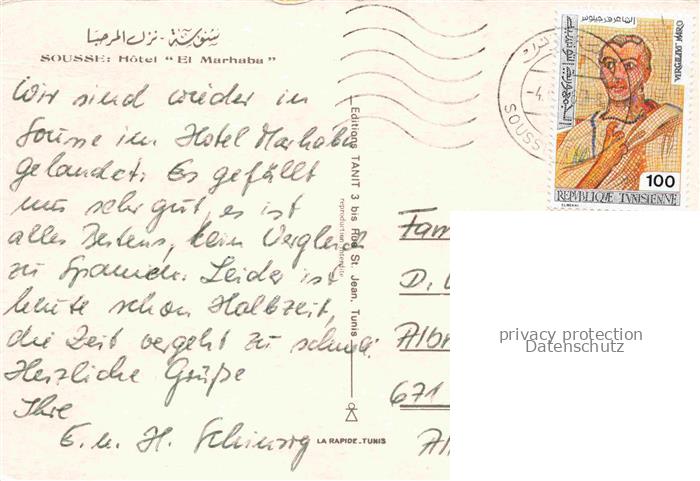 سوسة - نزل المرحبا
SOUSSE: Hôtel "El Marhaba"
Wir sind wieder in
Sousse im Hotel Marhaba
gelandet. Es gefällt
uns sehr gut, es ist
alles Bestens, kein Vergleich
zu Spanien. Leider ist
heute schon Halbzeit,
die Zeit vergeht zu schnell.
Herzliche Grüße
Ihre
E. u. H.
Editions TANIT 3 bis Rue St. Jean, Tunis
reproduction interdite
LA RAPIDE-TUNIS
SOUSS
-4.
الجمهورية التونسية
VERGILIUS MARO
100
REPUBLIQUE TUNISIENNE
EL MEKKI
Fam
D.
Albr
671
privacy protection
Datenschutz